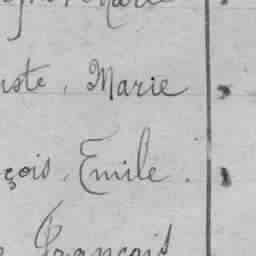 Marie
uste, Marie
çois, Emile.
François